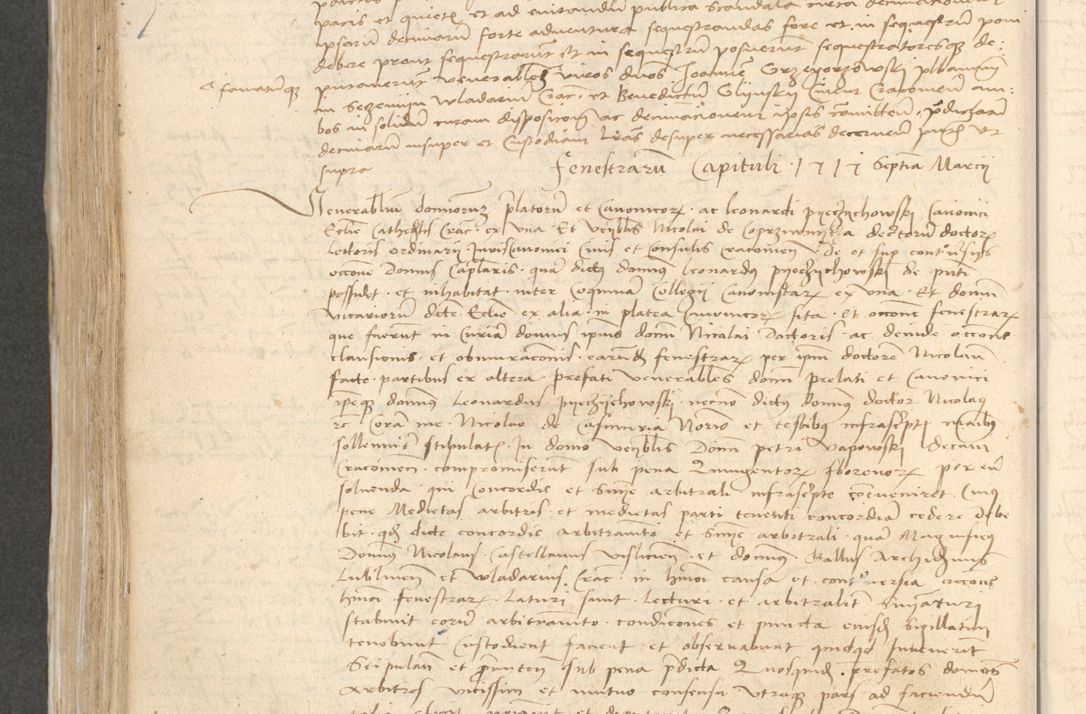 pacis et quietis et ad evitandum publica scandala circa
ipsarum decimarum forte adventura sequestrandas fore et in sequestrum poni
debere prout sequestrarunt et in sequestrum posuerunt sequestratoresque de-
putaverunt venerabiles viros dnos Joannem Grzegorzowski plbanum
in wladarium Crac. et Benedictum Glijnskij Cracovien am-
bos in solidum curam dispositionis ac decimacionem ipsis committen. predictarum
decimarum insuper et Custodiam Lras desuper necessarias decernen. ut
supra
Fenestrarum Capituli 1717 Septia Marcij
Venerabilium dominorum prelatorum et Canonicorum ac Leonardi Pyeczychowskj Canonici
Ecclie Cathedralis Crac. ex una Et venblis Nicolai de Coprziwnicza decretorum doctoris
Lectoris ordinarij Juris Canonici Civis et Consulis Cracovien de et sup controversiis
occone Domus Capitularis quam dictus dominus Leonardus pyeczychowskj de pnti
possidet et inhabitat inter Coquinam Collegij Canonistarum ex una Et domum
vicariorum dicte Ecclie ex alia in platea Canonicorum sita Et occone fenestrarum
que fuerunt in Curiam domus ipsius domni Nicolai Doctoris ac deinde occone
clausionis et obmuracionis earundem fenestrarum per ipsum doctorem Nicolaum
facte partibus ex altera prefati venerabiles domini prelati et Canonici
ipseque dominus Leonardus pyeczychowskj necnon dictus dominus doctor Nicolaus
coram me Nicolao de Casimiria Notario et testibus infrascriptis manibus
sollemniter stipulatis In domo venblis Domini petri Vapowskj decani
Cracovien compromiserunt sub pena Quingentorum florenorum per eum
solvenda qui Concordie et Summe arbitrali infrascripte contraveniret Cuius
pene Medietas arbitris et medietas parti tenenti concordiam cedere debe
bit quod dicte concordie arbitramento et summe arbitrali quam Magnificus
Dominus Nicolaus Castellanus vislicien et dominus Gallus Archidiaconus
Lublinen et wladarius Crac. in hmoi causa et controversia occone
hmoi fenestrarum laturi sunt lecturi et arbitraliter
stabunt eorum arbitramento condicones et puncta eiusdem sigillatim
tenebunt Custodient facient et observabunt quidquid Invenerit
Stipulan et promitten sub pena predicta Quosquidem prefatos dominos
Arbitros vicissim et mutuo consensu utraque pars ad faciendum